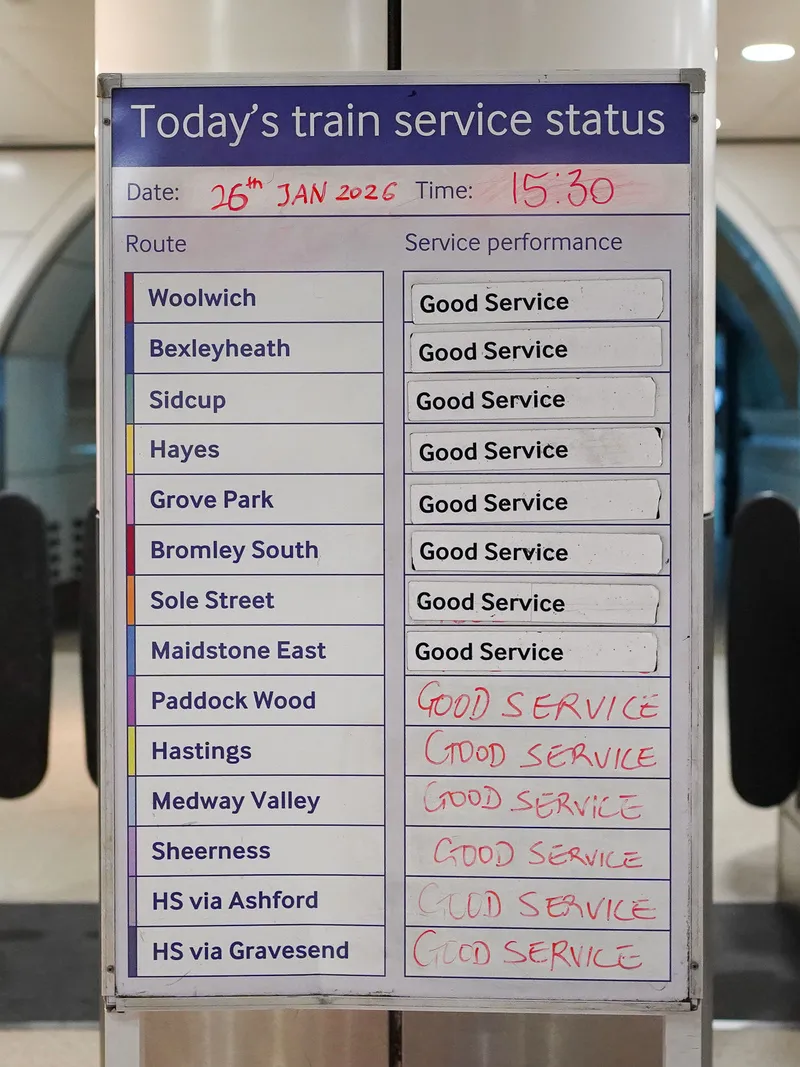 Today's train service status
Date: 26th JAN 2026 Time: 15:30
Route Service performance
Woolwich Good Service
Bexleyheath Good Service
Sidcup Good Service
Hayes Good Service
Grove Park Good Service
Bromley South Good Service
Sole Street Good Service
Maidstone East Good Service
Paddock Wood GOOD SERVICE
Hastings GOOD SERVICE
Medway Valley GOOD SERVICE
Sheerness GOOD SERVICE
HS via Ashford GOOD SERVICE
HS via Gravesend GOOD SERVICE